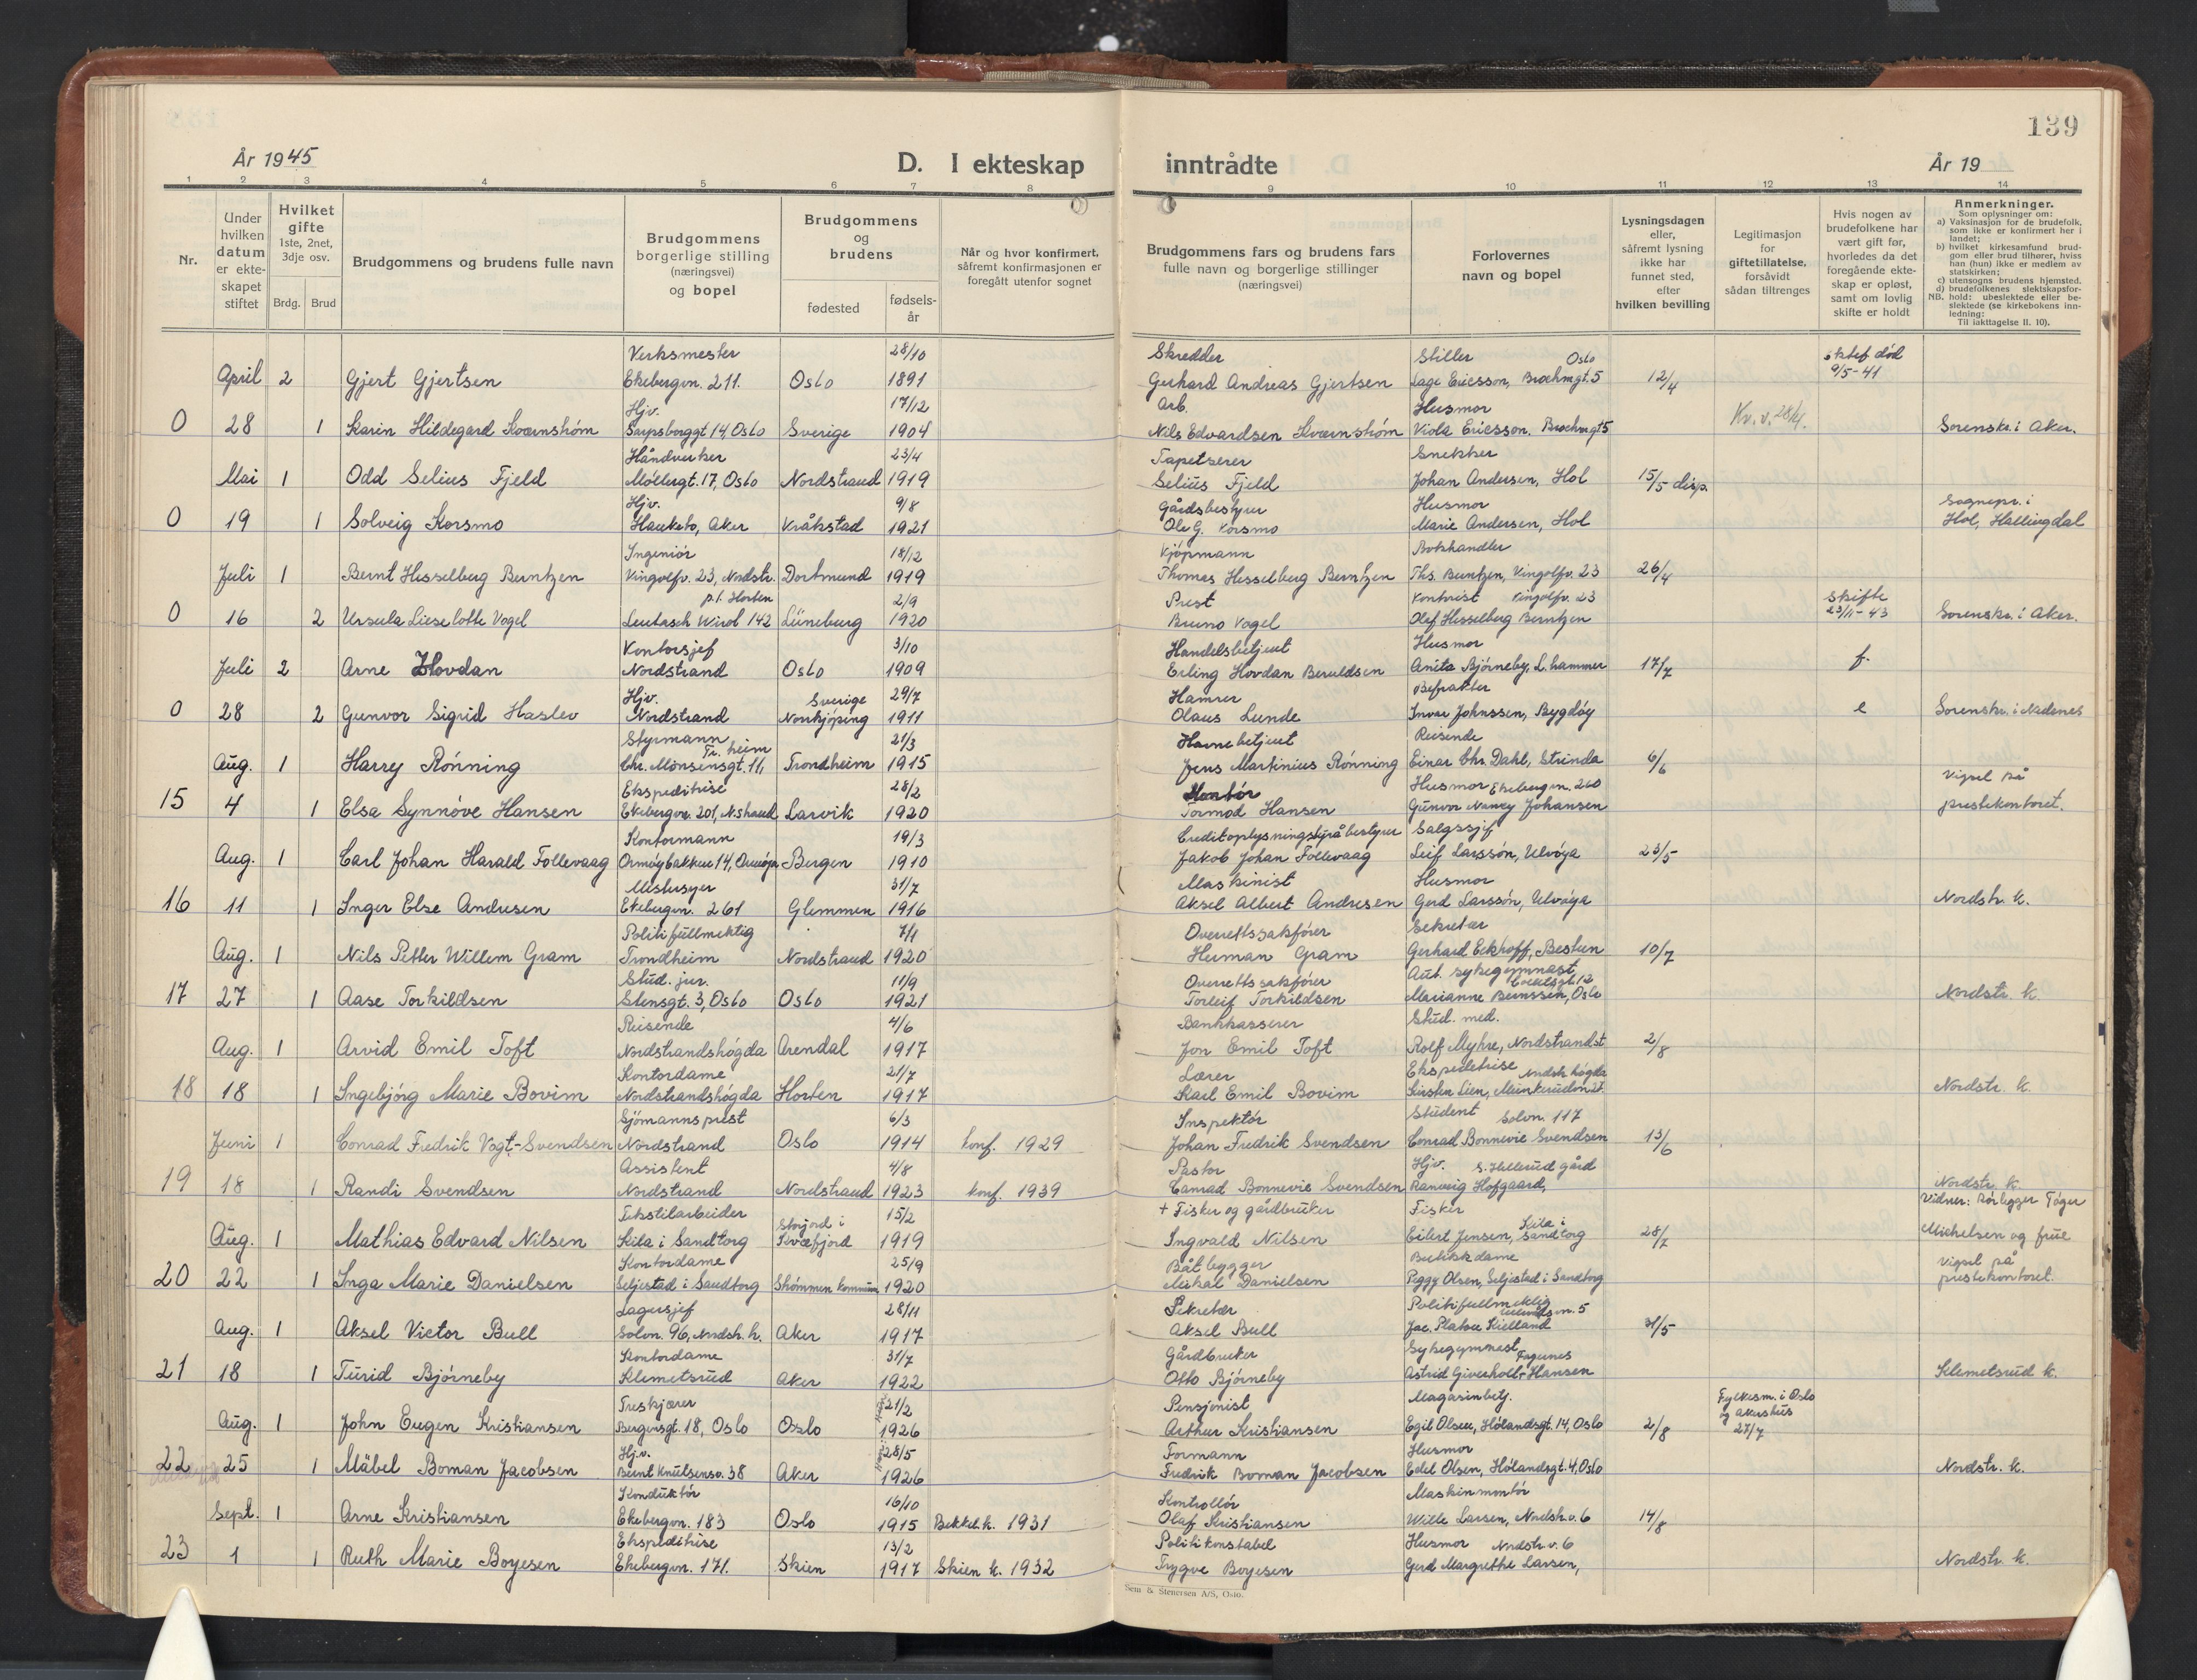 139
År 1945
D. I ekteskap inntrådte
År 19
1 2 3 4 5 6 7 8 9 10 11 12 13 14
Nr.
Under hvilken datum er ekte-skapet stiftet
Hvilket gifte 1ste, 2net, 3dje osv.
Brdg. Brud
Brudgommens og brudens fulle navn
Brudgommens borgerlige stilling (næringsvei) og bopel
Brudgommens og brudens
fødested
fødsels-år
Når og hvor konfirmert, såfremt konfirmasjonen er foregått utenfor sognet
Brudgommens fars og brudens fars fulle navn og borgerlige stillinger (næringsvei)
Forlovernes navn og bopel
Lysningsdagen eller, såfremt lysning ikke har funnet sted, efter hvilken bevilling
Legitimasjon for giftetillatelse, forsåvidt sådan tiltrenges
Hvis nogen av brudefolkene har vært gift før, hvorledes da det foregående ekte-skap er opløst, samt om lovlig skifte er holdt
Anmerkninger.
Som oplysninger om:
a) Vaksinasjon for de brudefolk, som ikke er konfirmert her i landet;
b) hvilket kirkesamfund brud-gom eller brud tilhører, hviss han (hun) ikke er medlem av statskirken;
c) utensogns brudens hjemsted.
d) brudefolkenes slektskapsfor-hold: ubeslektede eller be-slektede (se kirkebokens inn-ledning:
NB. Til iakttagelse II. 10).
Verksmester 28/10 Skredder Stiller Oslo ektef død
April 2 Gjert Gjertsen Ekebergvn. 211. Oslo 1891 Gerhard Andreas Gjertsen Lage Ericsson, Brochmgt. 5 12/4 9/5-41
Hjv. 17/12 Arb. Husmor
0 28 1 Karin Hildegard Kværnshøm Sarpsborggt 14, Oslo Sverige 1904 Nils Edvardsen Kværnshøm Viola Ericsson, Brochmgt 5 Kv. v. 28/4. Sorenskr. i Aker.
Håndverker 23/4 Tapetserer Snekker
Mai 1 Odd Selius Fjeld Møllergt. 17, Oslo Nordstrand 1919 Selius Fjeld Johan Andersen, Hol 15/5 disp.
Hjv. 9/8 Gårdsbestyrer Husmor Sognepr. i
0 19 1 Solveig Korsmo Hauketo, Aker Kråkstad 1921 Ole G. Korsmo Marie Andersen, Hol Hol, Hallingdal
Ingeniør 18/12 Kjøpmann Bokhandler
Juli 1 Bernt Hesselberg Berntzen Vingolfv. 23, Nordstr. Dortmund 1919 Thomas Hesselberg Berntzen Ths. Berntzen, Vingolfv. 23 26/4
p.t. Horten 2/9 Prest Kontorist Vingolfv. 23 skifte
0 16 2 Ursula Lieselotte Vogel Leutasch Wirol 142 Lüneburg 1920 Bruno Vogel Olef Hesselberg Berntzen 23/11-43 Sorenskr. i Aker.
Kontorsjef 3/10 Handelsbetjent Husmor
Juli 2 Arne Hovdan Nordstrand Oslo 1909 Erling Hovdan Beruldsen Anita Bjørneby, L.hammer 17/7 f.
Hjv. Sverige 29/7 Hamrer Befrakter
0 28 2 Gunvor Sigrid Haslev Nordstrand Norrkjøping 1911 Olaus Lunde Invar Johnssen, Bygdøy e Sorenskr. i Nedenes
Styrmann Tr.heim 21/3 Havnebetjent Reisende
Aug. 1 Harry Rønning Chr. Monsensgt. 11, Trondheim 1915 Jens Martinius Rønning Einar Chr. Dahl, Strinda 6/6
Ekspeditrise 28/2 Kontor Husmor Ekebergvn. 260 Vigsel på
15 4 1 Elsa Synnøve Hansen Ekebergvn. 201, N.strand Larvik 1920 Tormod Hansen Gunvor Nancy Johansen prestekontoret.
Kontormann 19/3 Creditoplysningsbyråbestyrer Salgssjef
Aug. 1 Carl Johan Harald Follevaag Ormøybakken 14, Ormøya Bergen 1910 Jakob Johan Follevaag Leif Larssøn, Ulvøya 23/5
31/7 Maskinist Husmor
16 11 1 Inger Else Andresen Ekebergvn. 261 Glemmen 1916 Aksel Albert Andresen Gerd Larssøn, Ulvøya Nordstr. k.
Politifullmektig 7/1 Overrettssakfører Sekretær
Aug. 1 Nils Petter Willem Gram Trondheim Nordstrand 1920 Herman Gram Gerhard Eckhoff, Bestun 10/7
Stud. jur. 11/9 Overrettssakfører Aut. sykegymnast,
17 27 1 Aase Torkildsen Stensgt. 3, Oslo Oslo 1921 Torleif Torkildsen Marianne Berntsen, Oslo Nordstr. k.
Reisende 4/6 Bankkasserer Stud. med.
Aug. 1 Arvid Emil Toft Nordstrandshøgda Arendal 1917 Jon Emil Toft Rolf Myhre, Nordstrandst 2/8
Kontordame 21/7 Lærer Ekspeditrise Nordstr. høgda
18 18 1 Ingebjørg Marie Bovim Nordstrandshøgda Horten 1917 Karl Emil Bovim Kirsten Lien, Munkerudvn 27. Nordstr. k.
Sjømannsprest 6/3 Inspektør Student Solvn. 117
Juni 1 Conrad Fredrik Vogt-Svendsen Nordstrand Oslo 1914 konf. 1929 Johan Fredrik Svendsen Conrad Bonnevie Svendsen 13/6
Assistent 4/8 Pastor Hjv. S. Hellerud gård
19 18 1 Randi Svendsen Nordstrand Nordstrand 1923 konf. 1939 Conrad Bonnevie Svendsen Ranveig Hofgaard, Nordstr. k.
Tekstilarbeider Storjord i 15/2 + Fisker og gårdbruker Fisker Kila i Vidner: Rørlegger Tøger
Aug. 1 Mathias Edvard Nilsen Kila i Sandtorg Kvæfjord 1919 Ingvald Nilsen Eilert Jensen, Sandtorg 28/7 Michelsen og frue
Kontordame 25/9 Båtbygger Butikkdame Vigsel på
20 22 1 Inga Marie Danielsen Seljestad i Sandtorg Skånnen kommune 1920 Mikal Danielsen Peggy Olsen, Seljestad i Sandtorg prestekontoret.
Lagersjef 28/11 Sekretær Politifullmektig
Aug. 1 Aksel Victor Bull Solvn. 96, Nordstr. h. Aker 1917 Aksel Bull Jac. Platou Kielland 31/5
Kontordame 31/7 Gårdbruker Sykegymnast Fagernes
21 18 1 Turid Bjørneby Klemetsrud Aker 1922 Otto Bjørneby Astrid Giverholt-Hansen Klemetsrud k.
Treskjærer 21/2 Pensjonist Magasinbetj. Fylkesm. i Oslo
Aug. 1 John Eugen Kristiansen Bergvisgt. 18, Oslo Oslo 1926 Arthur Kristiansen Egil Olsen, Hølandsgt. 14, Oslo 2/8 og Akershus 27/7
Hj.v. 28/5 Formann Husmor
22 25 1 Mäbel Boman Jacobsen Bernt Knutsensv. 38 Aker 1926 Fredrik Boman Jacobsen Edel Olsen, Hølandsgt. 4, Oslo Nordstr. k.
Konduktør 16/10 Kontrollør Maskinmontør
Sept. 1 Arne Kristiansen Ekebergvn. 183 Oslo 1915 Bekkel. k. 1931 Olaf Kristiansen Wille Larsen, Nordstr. v. 6 14/8
Ekspeditrise 13/2 Politikonstabel Husmor Nordstr. v. 6
23 1 1 Ruth Marie Boyesen Ekebergvn. 171. Skien 1917 Skien k. 1932 Trygve Boyesen Gerd Margrethe Larsen, Nordstr. k.
Sem & Stenersen A/S, Oslo.